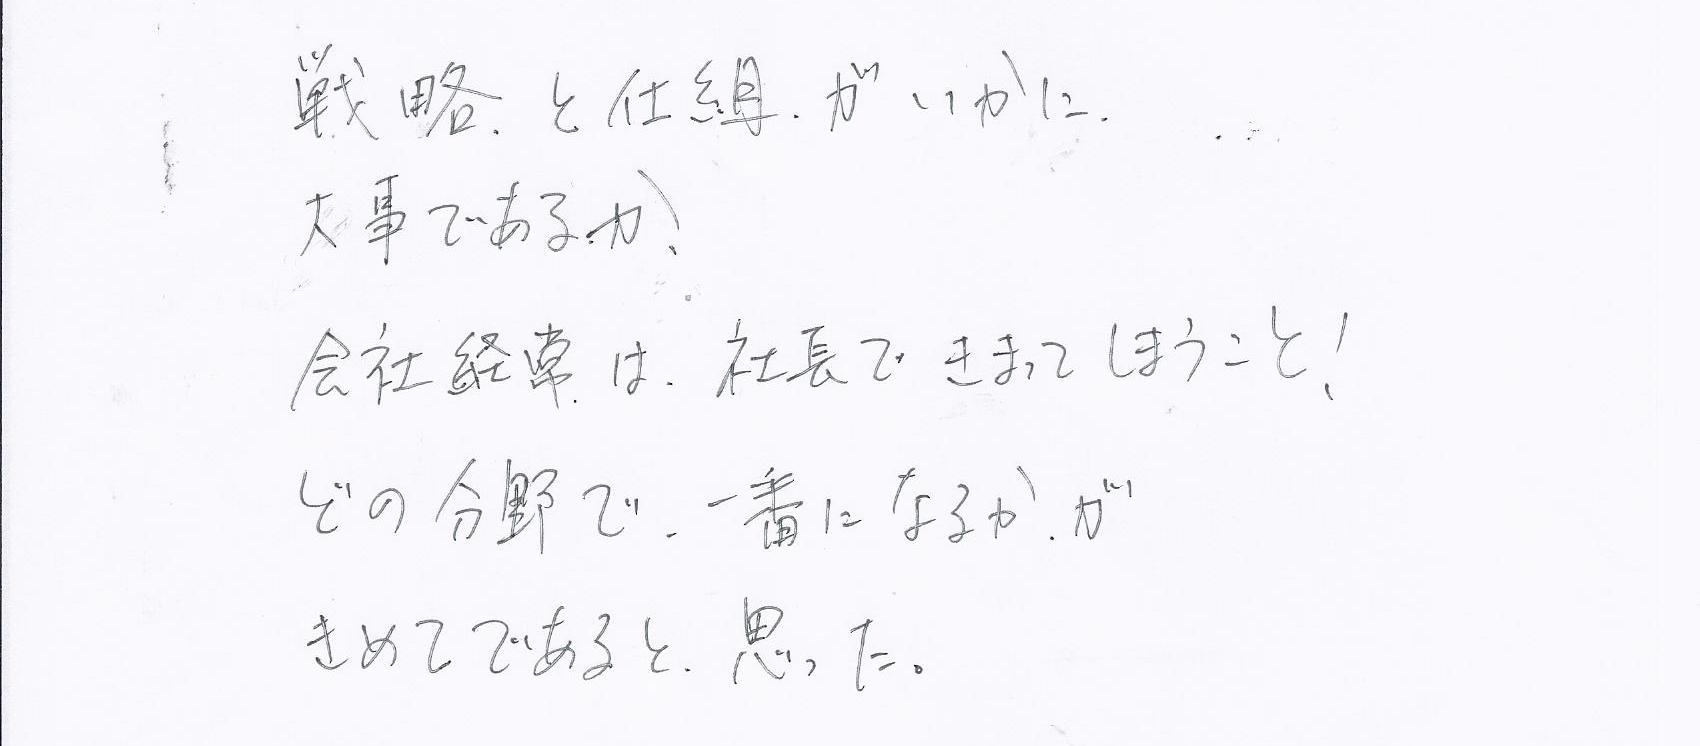 戦略と仕組がいかに
大事であるか、
会社経営は、社長できまってしまうこと!
どの分野で、一番になるかが
きめてであると思った。